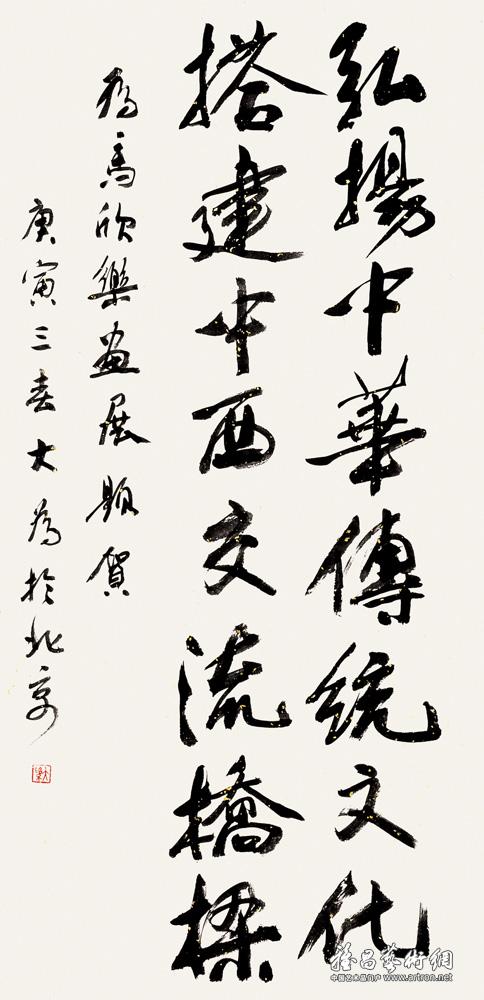 弘揚中華傳統文化
搭建中西交流橋樑
為馬欣樂畫展題賀
庚寅三春大為於北京
雅昌藝術網
中国艺术品门户 www.artron.net